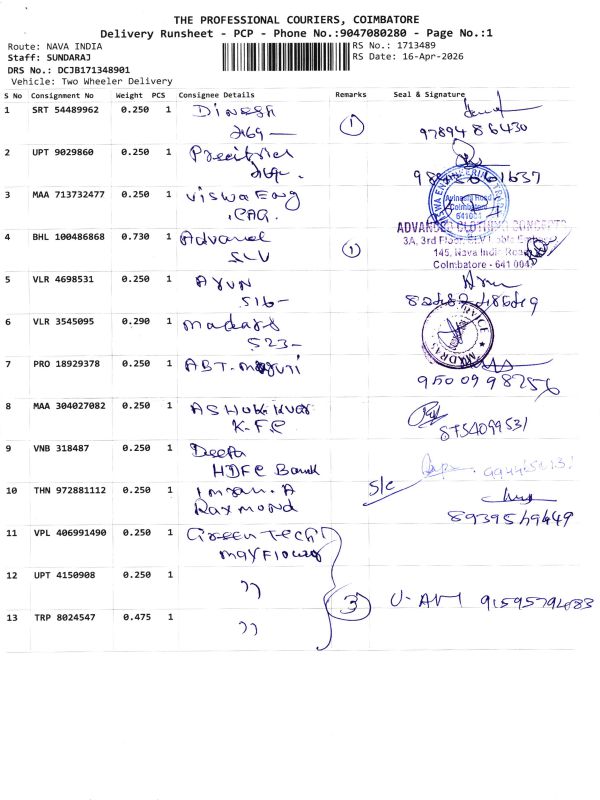 THE PROFESSIONAL COURIERS, COIMBATORE
Delivery Runsheet - PCP - Phone No.:9047080280 - Page No.:1
Route: NAVA INDIA
RS No.: 1713489
Staff: SUNDARAJ
RS Date: 16-Apr-2026
DRS No.: DCJB171348901
Vehicle: Two Wheeler Delivery
S No Consignment No Weight PCS Consignee Details Remarks Seal & Signature
1 SRT 54489962 0.250 1 DINESH
1
9789486430
2 UPT 9029860 0.250 1
3 MAA 713732477 0.250 1 Viswa Eng
Avinashi Road
Coimbatore
641004
4 BHL 100486868 0.730 1
SLV
1
ADVANCED CLOTHING CONCEPTS
3A, 3rd Floor,
145, Nava India Road
Coimbatore - 641 004
5 VLR 4698531 0.250 1 ARUN
516-
6 VLR 3545095 0.290 1 Madras
523-
MADRAS
7 PRO 18929378 0.250 1 ABT. Maruti
9500998256
8 MAA 304027082 0.250 1 ASHOK KUMAR
K.F.C
8754099531
9 VNB 318487 0.250 1 Deepa
HDFC Bank
10 THN 972881112 0.250 1 Imran. A
Raymond
S/c
8939549449
11 VPL 406991490 0.250 1 Green Tech
Mayflower
12 UPT 4150908 0.250 1 "
3
13 TRP 8024547 0.475 1 "